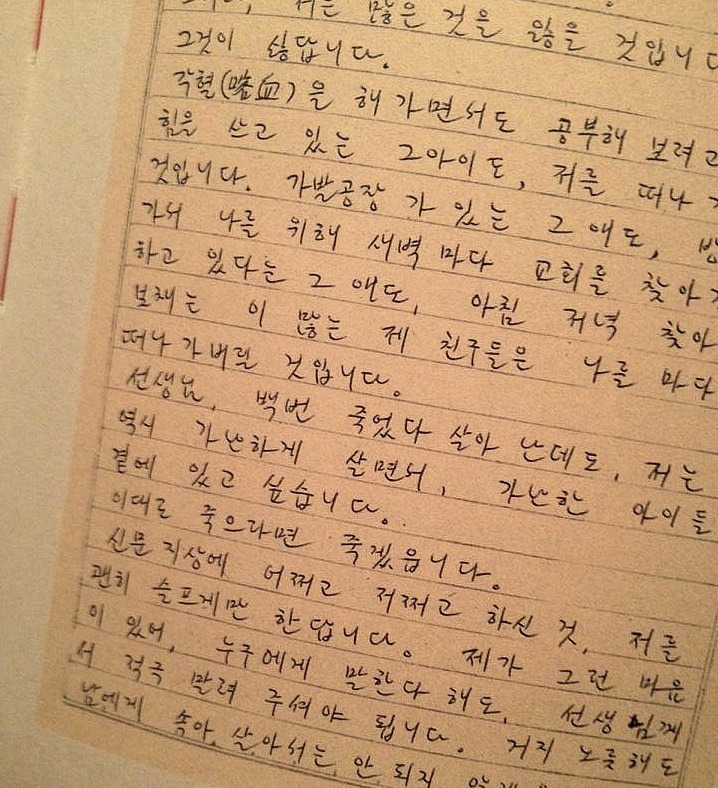 저는 많은 것을 잃을 것입니다
그것이 싫답니다.
각혈(喀血)을 해 가면서도 공부해 보려고
힘을 쓰고 있는 그아이도, 저를 떠나
것입니다. 가발공장 가 있는 그 애도,
가서 나를 위해 새벽 마다 교회를 찾아
하고 있다는 그 애도, 아침 저녁 찾아
보채는 이 많은 제 친구들은 나를 마다
떠나 가버릴 것입니다.
선생님, 백번 죽었다 살아 난데도, 저는
역시 가난하게 살면서, 가난한 아이들
곁에 있고 싶습니다.
이대로 죽으라면 죽겠읍니다.
신문 지상에 어쩌고 저쩌고 하신 것, 저를
괜히 슬프게만 한답니다. 제가 그런 마음
이 있어, 누구에게 말한다 해도, 선생님께
서 적극 말려 주셔야 됩니다. 거지 노릇해도
남에게 속아 살아서는 안 되지